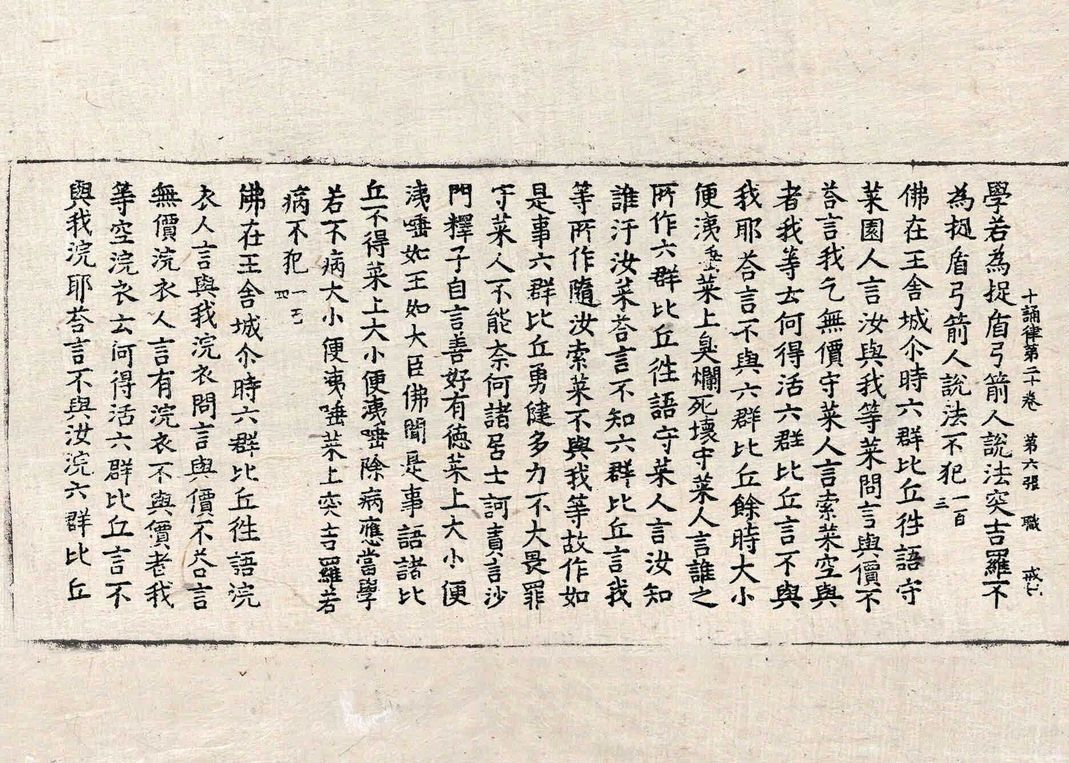 十誦律第二十卷　第六張　職
學若為捉盾弓箭人說法突吉羅不
為捉盾弓箭人說法不犯一百三
佛在王舍城尒時六群比丘徃語守
菜園人言汝與我等菜問言與價不
荅言我乞無價守菜人言索菜空與
者我等云何得活六群比丘言不與
我耶荅言不與六群比丘餘時大小
便洟唾菜上臭爛死壞守菜人言誰之
所作六群比丘徃語守菜人言汝知
誰汙汝菜荅言不知六群比丘言我
等所作隨汝索菜不與我等故作如
是事六群比丘勇健多力不大畏罪
守菜人不能奈何諸居士訶責言沙
門釋子自言善好有德菜上大小便
洟唾如王如大臣佛聞是事語諸比
丘不得菜上大小便洟唾除病應當學
若不病大小便洟唾菜上突吉羅若
病不犯一百四
佛在王舍城尒時六群比丘徃語浣
衣人言與我浣衣問言與價不荅言
無價浣衣人言有浣衣不與價者我
等空浣衣云何得活六群比丘言不
與我浣耶荅言不與汝浣六群比丘